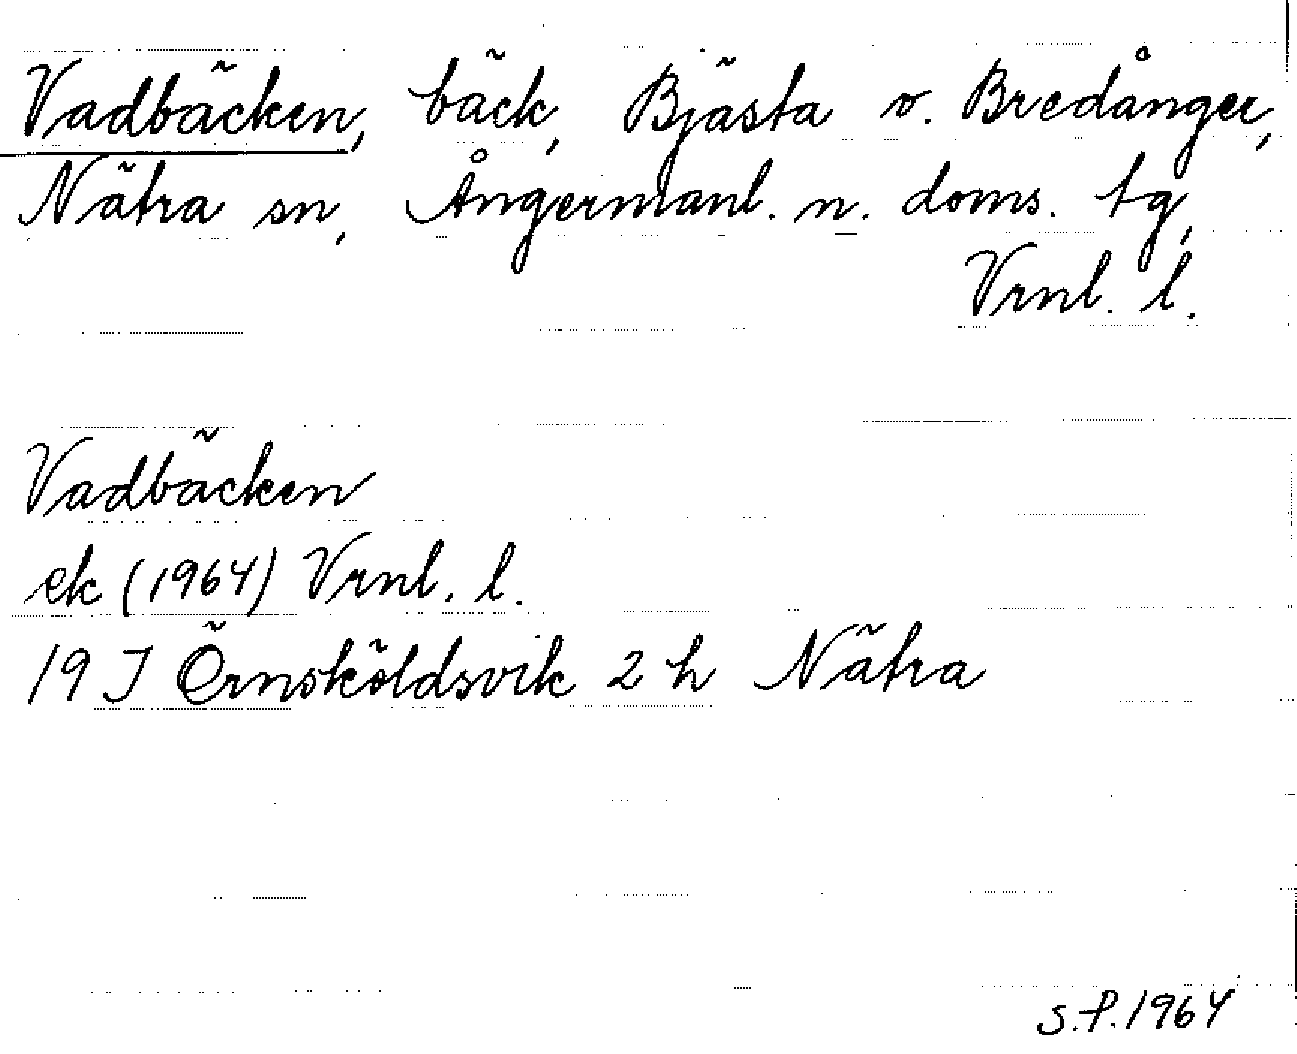 Vadbäcken, bäck, Bjästa o. Bredånger,
Nätra sn, Ångermanl. n. doms. tg,
Vrnl. l.
Vadbäcken
ek (1964) Vrnl. l.
19 J Örnsköldsvik 2 h Nätra
S.P. 1964